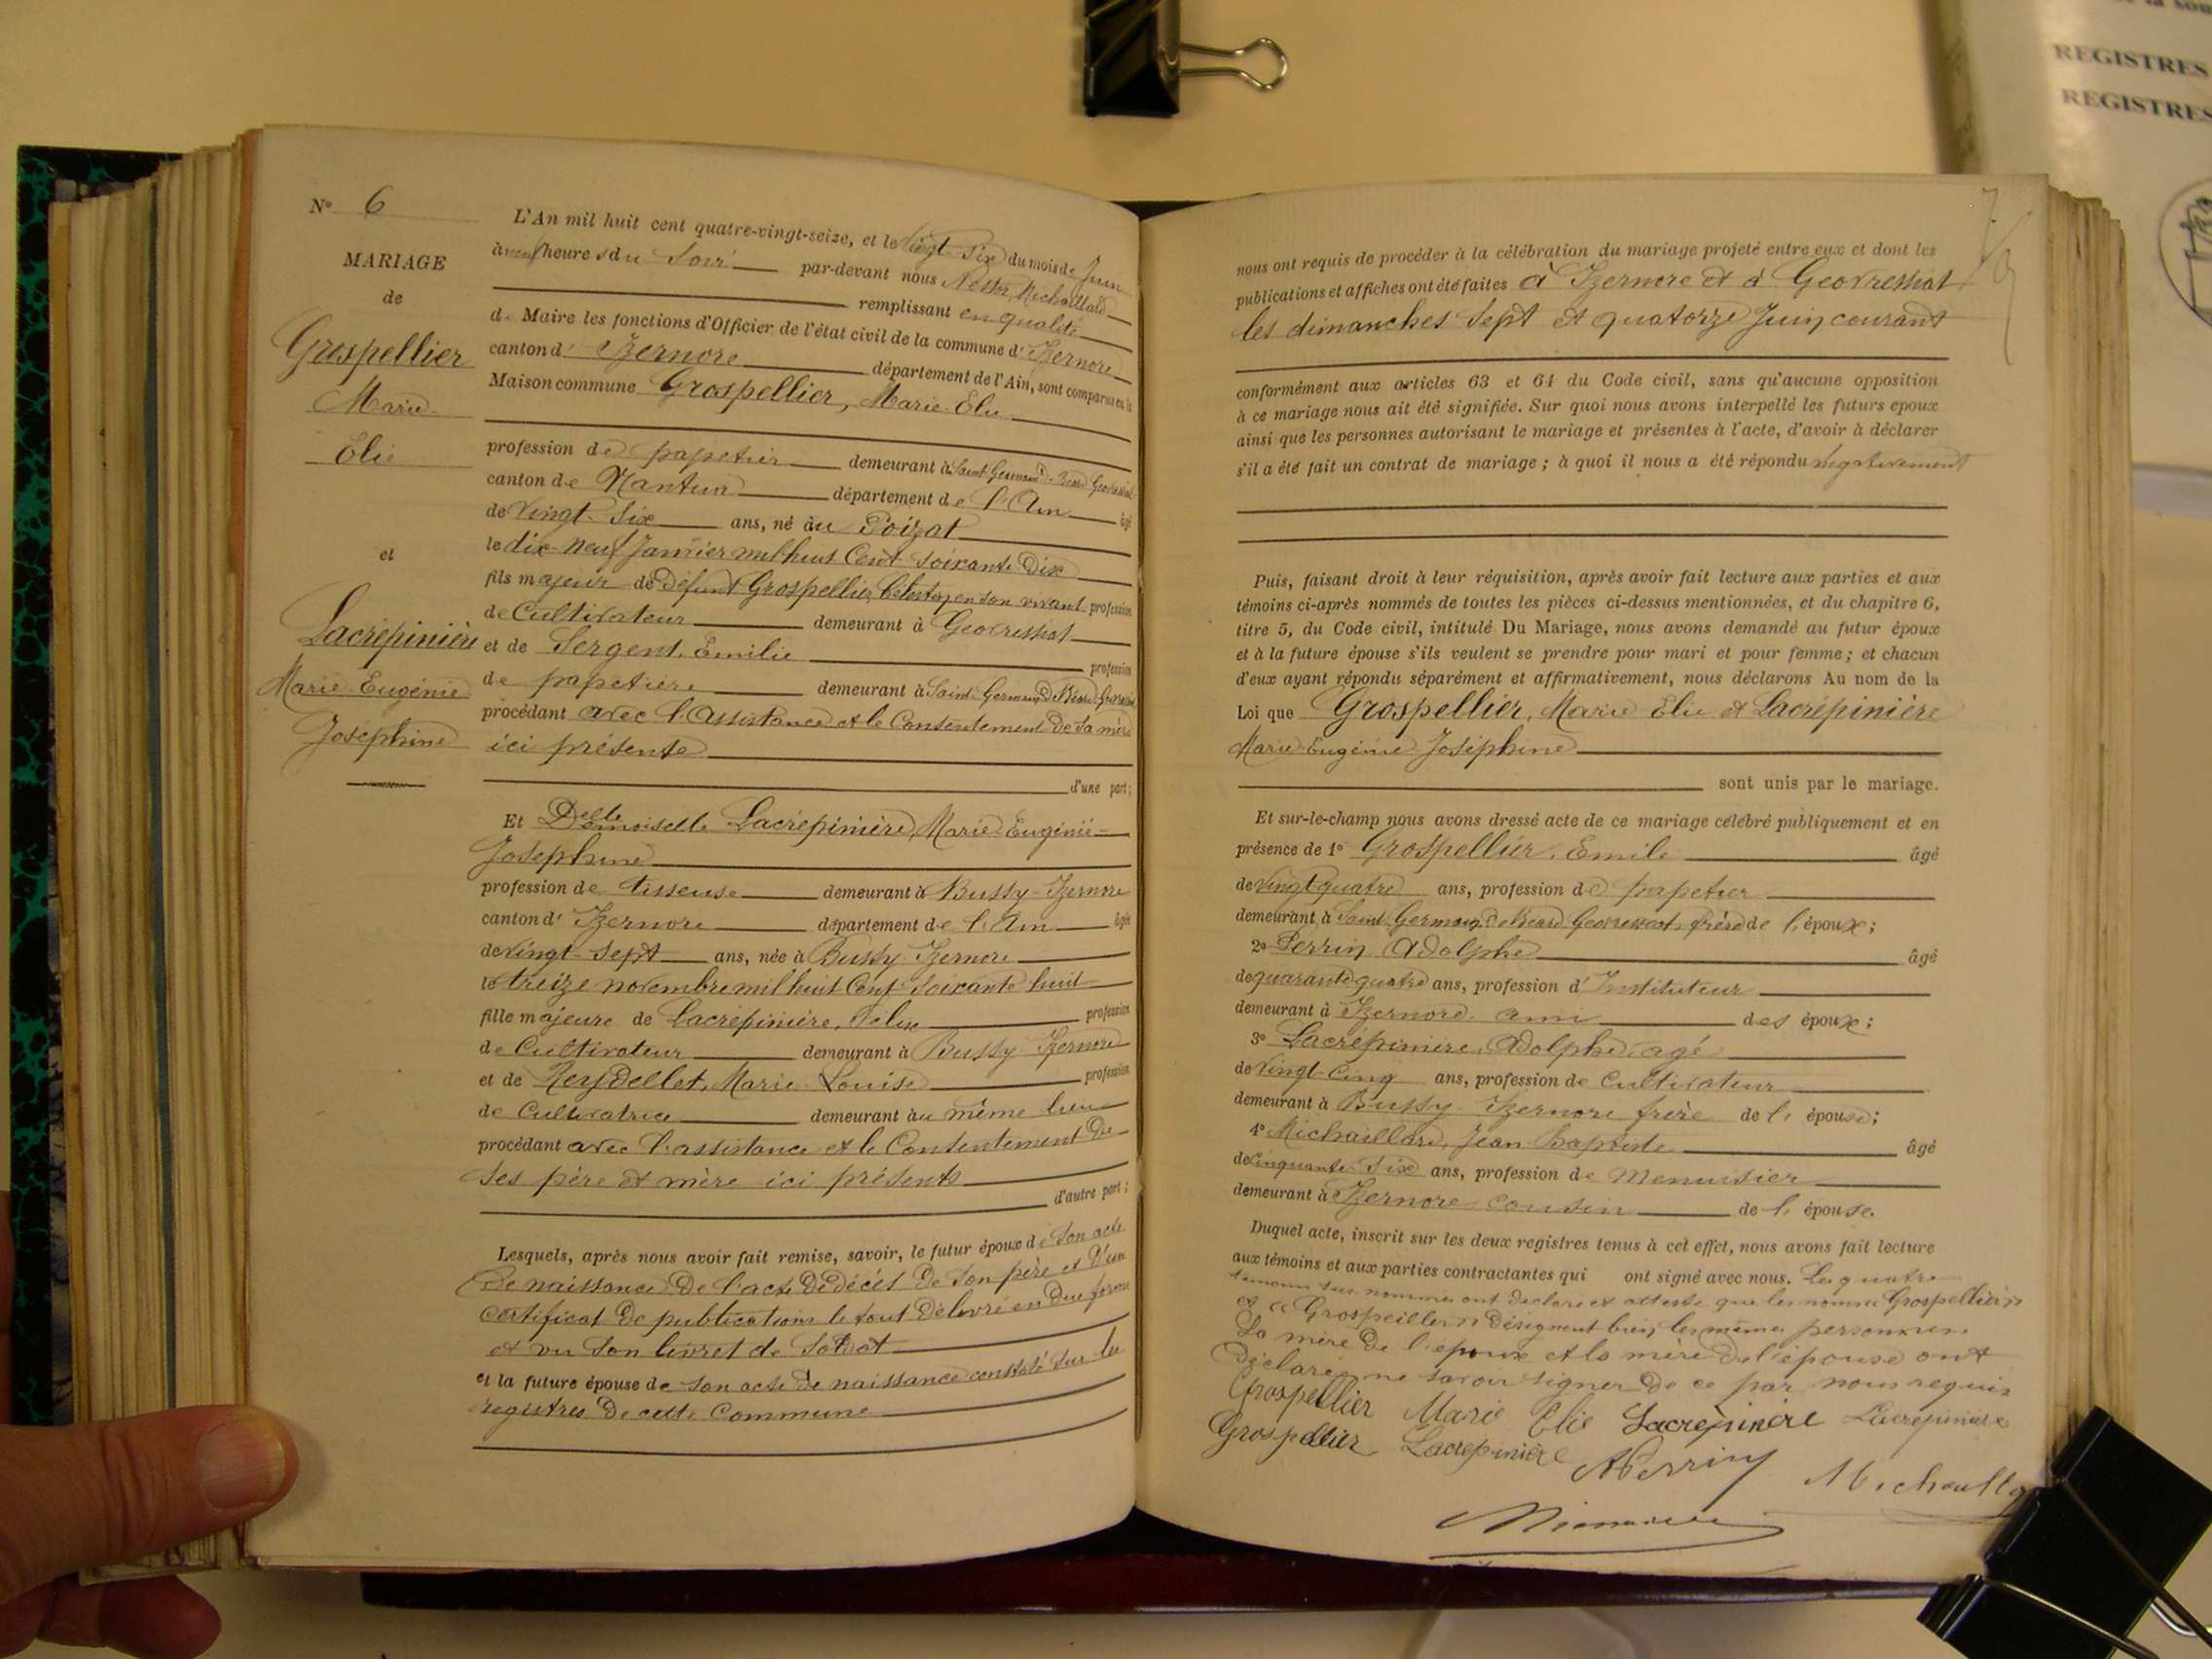 N° 6
MARIAGE
de
Grospellier
Marie
Elie
et
Lacrépinière
Marie Eugénie
Joséphine
L'An mil huit cent quatre-vingt-seize, et le vingt-six du mois de Juin
à neuf heures du soir par-devant nous Nestor Michaillard
remplissant en qualité
de Maire les fonctions d'Officier de l'état civil de la commune d'Izernore
canton d'Izernore département de l'Ain, sont comparus en la
Maison commune Grospellier, Marie Elie
profession de papetier demeurant à Saint Germain de Béard Géovressiat
canton de Nantua département de l'Ain âgé
de vingt-six ans, né au Poizat
le dix-neuf Janvier mil huit Cent soixante Dix
fils majeur de Défunt Grospellier, Célestin, en son vivant profession
de Cultivateur demeurant à Géovressiat
et de Sergent, Emilie profession
de papetière demeurant à Saint Germain de Béard Géovressiat
procédant avec l'assistance et le Consentement de sa mère
ici présente
d'une part;
Et Delle Demoiselle Lacrépinière, Marie Eugénie
Joséphine
profession de tisseuse demeurant à Bussy-Izernore
canton d'Izernore département de l'Ain âgée
de vingt-sept ans, née à Bussy Izernore
le treize novembre mil huit Cent soixante huit
fille majeure de Lacrépinière, Félix profession
de Cultivateur demeurant à Bussy Izernore
et de Reydellet, Marie Louise profession
de Cultivatrice demeurant au même lieu
procédant avec l'assistance et le Consentement de
ses père et mère ici présents
d'autre part;
Lesquels, après nous avoir fait remise, savoir, le futur époux de son acte
de naissance de l'acte de décès de son père et d'un
certificat de publications le tout délivré en due forme
et vu son livret de soldat
et la future épouse de son acte de naissance constaté sur les
registres de cette Commune
nous ont requis de procéder à la célébration du mariage projeté entre eux et dont les
publications et affiches ont été faites à Izernore et à Géovressiat
les dimanches sept et quatorze Juin courant
conformément aux articles 63 et 64 du Code civil, sans qu'aucune opposition
à ce mariage nous ait été signifiée. Sur quoi nous avons interpellé les futurs époux
ainsi que les personnes autorisant le mariage et présentes à l'acte, d'avoir à déclarer
s'il a été fait un contrat de mariage; à quoi il nous a été répondu négativement
Puis, faisant droit à leur réquisition, après avoir fait lecture aux parties et aux
témoins ci-après nommés de toutes les pièces ci-dessus mentionnées, et du chapitre 6,
titre 5, du Code civil, intitulé Du Mariage, nous avons demandé au futur époux
et à la future épouse s'ils veulent se prendre pour mari et pour femme; et chacun
d'eux ayant répondu séparément et affirmativement, nous déclarons Au nom de la
Loi que Grospellier, Marie Elie et Lacrépinière
Marie Eugénie Joséphine
sont unis par le mariage.
Et sur-le-champ nous avons dressé acte de ce mariage célébré publiquement et en
présence de 1° Grospellier, Emile âgé
de vingt quatre ans, profession de papetier
demeurant à Saint Germain de Béard Géovressiat, frère de l'époux;
2° Perrin Adolphe âgé
de quarante quatre ans, profession d'Instituteur
demeurant à Izernore, ami des époux;
3° Lacrépinière, Adolphe, agé
de vingt-cinq ans, profession de Cultivateur
demeurant à Bussy-Izernore frère de l'épouse;
4° Michaillard, Jean Baptiste âgé
de cinquante six ans, profession de Menuisier
demeurant à Izernore cousin de l'épouse.
Duquel acte, inscrit sur les deux registres tenus à cet effet, nous avons fait lecture
aux témoins et aux parties contractantes qui ont signé avec nous. Les quatre
témoins sus nommés ont déclaré et attesté que les nommés "Grospellier"
et "Grospeillier" désignent bien les mêmes personnes.
La mère de l'époux et la mère de l'épouse ont
déclaré ne savoir signer de ce par nous requis
Grospellier Marie Elie Lacrépinière Lacrépinière
Grospellier Lacrépinière APerrin Michailla
REGISTRES
REGISTRES